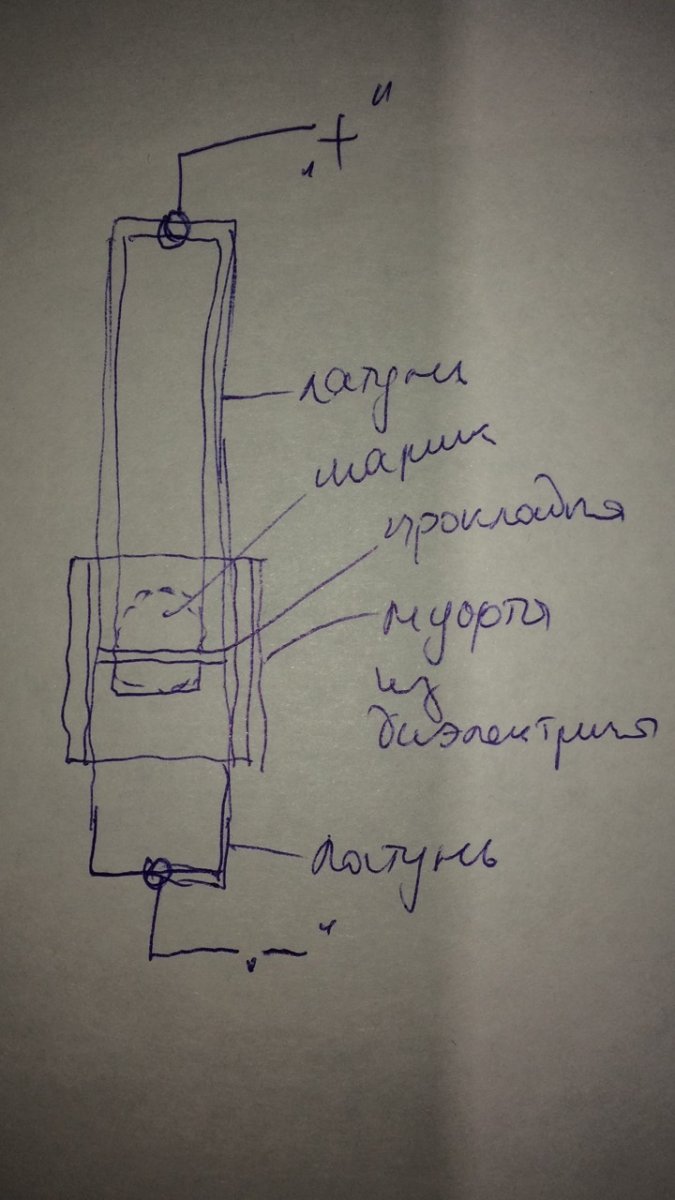 „+“
латунь
шарик
прокладка
муфта
из
диэлектрика
латунь
„—“